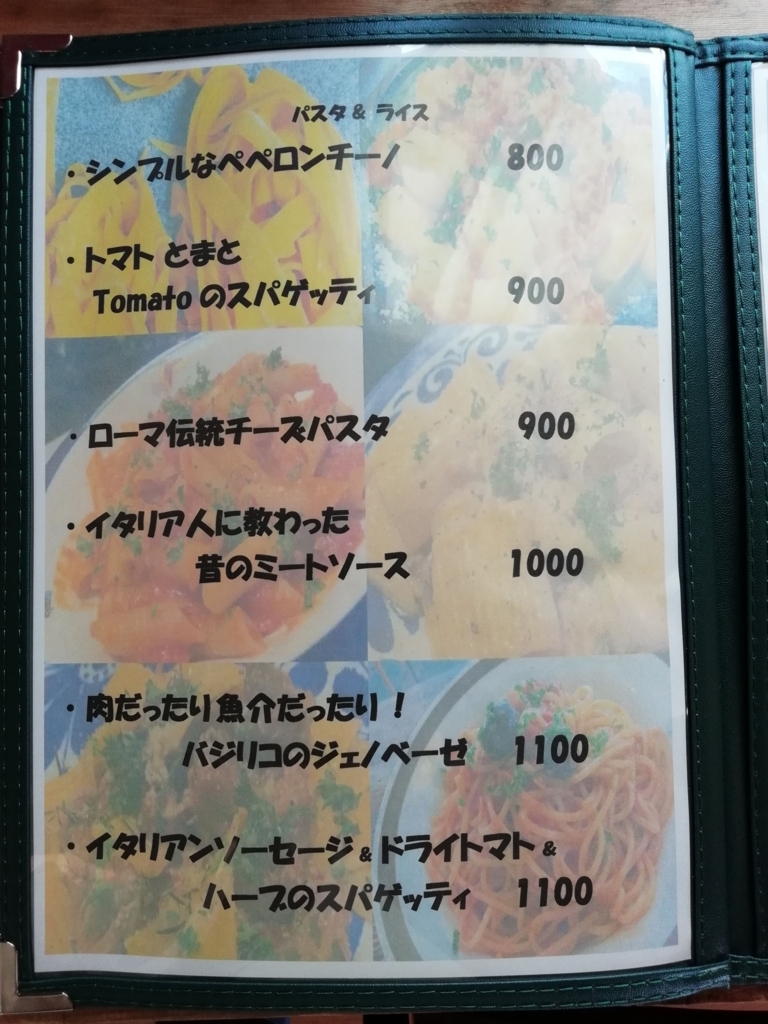 パスタ & ライス
・シンプルなペペロンチーノ 800
・トマト とまと
Tomato のスパゲッティ 900
・ローマ伝統チーズパスタ 900
・イタリア人に教わった
昔のミートソース 1000
・肉だったり魚介だったり！
バジリコのジェノベーゼ 1100
・イタリアンソーセージ & ドライトマト &
ハーブのスパゲッティ 1100